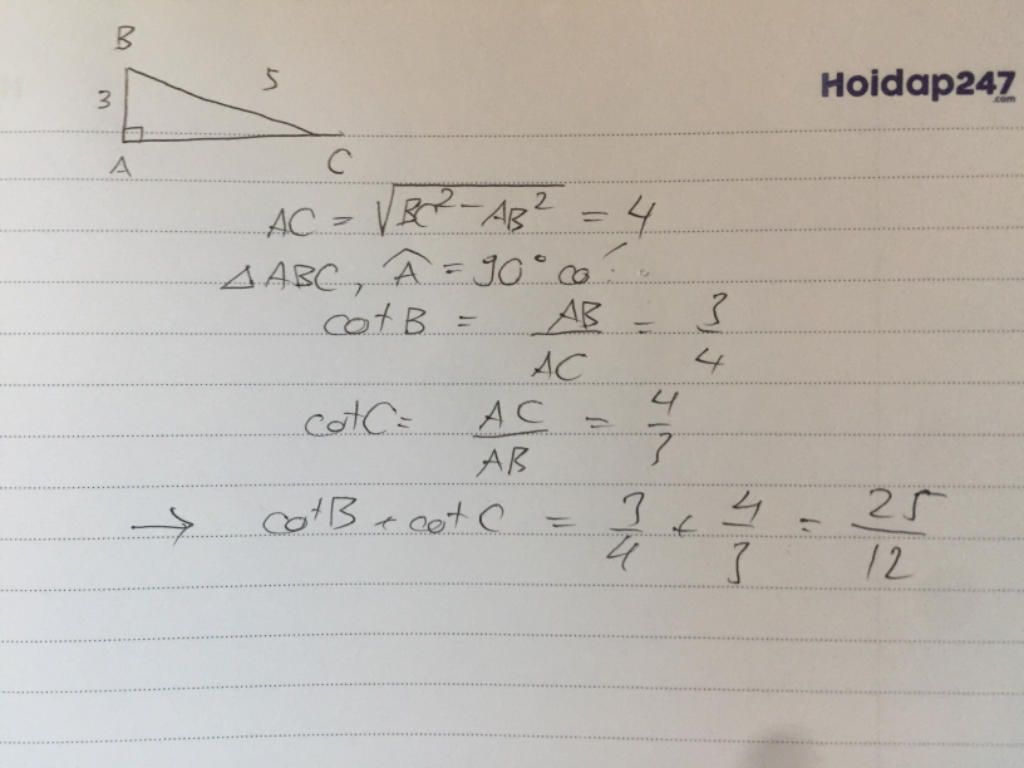 B
Hoidap247
.com
3
5
A
C
AC = √(BC² - AB²) = 4
△ABC, Â = 90° có:
cot B = AB/AC = 3/4
cot C = AC/AB = 4/3
→ cot B + cot C = 3/4 + 4/3 = 25/12